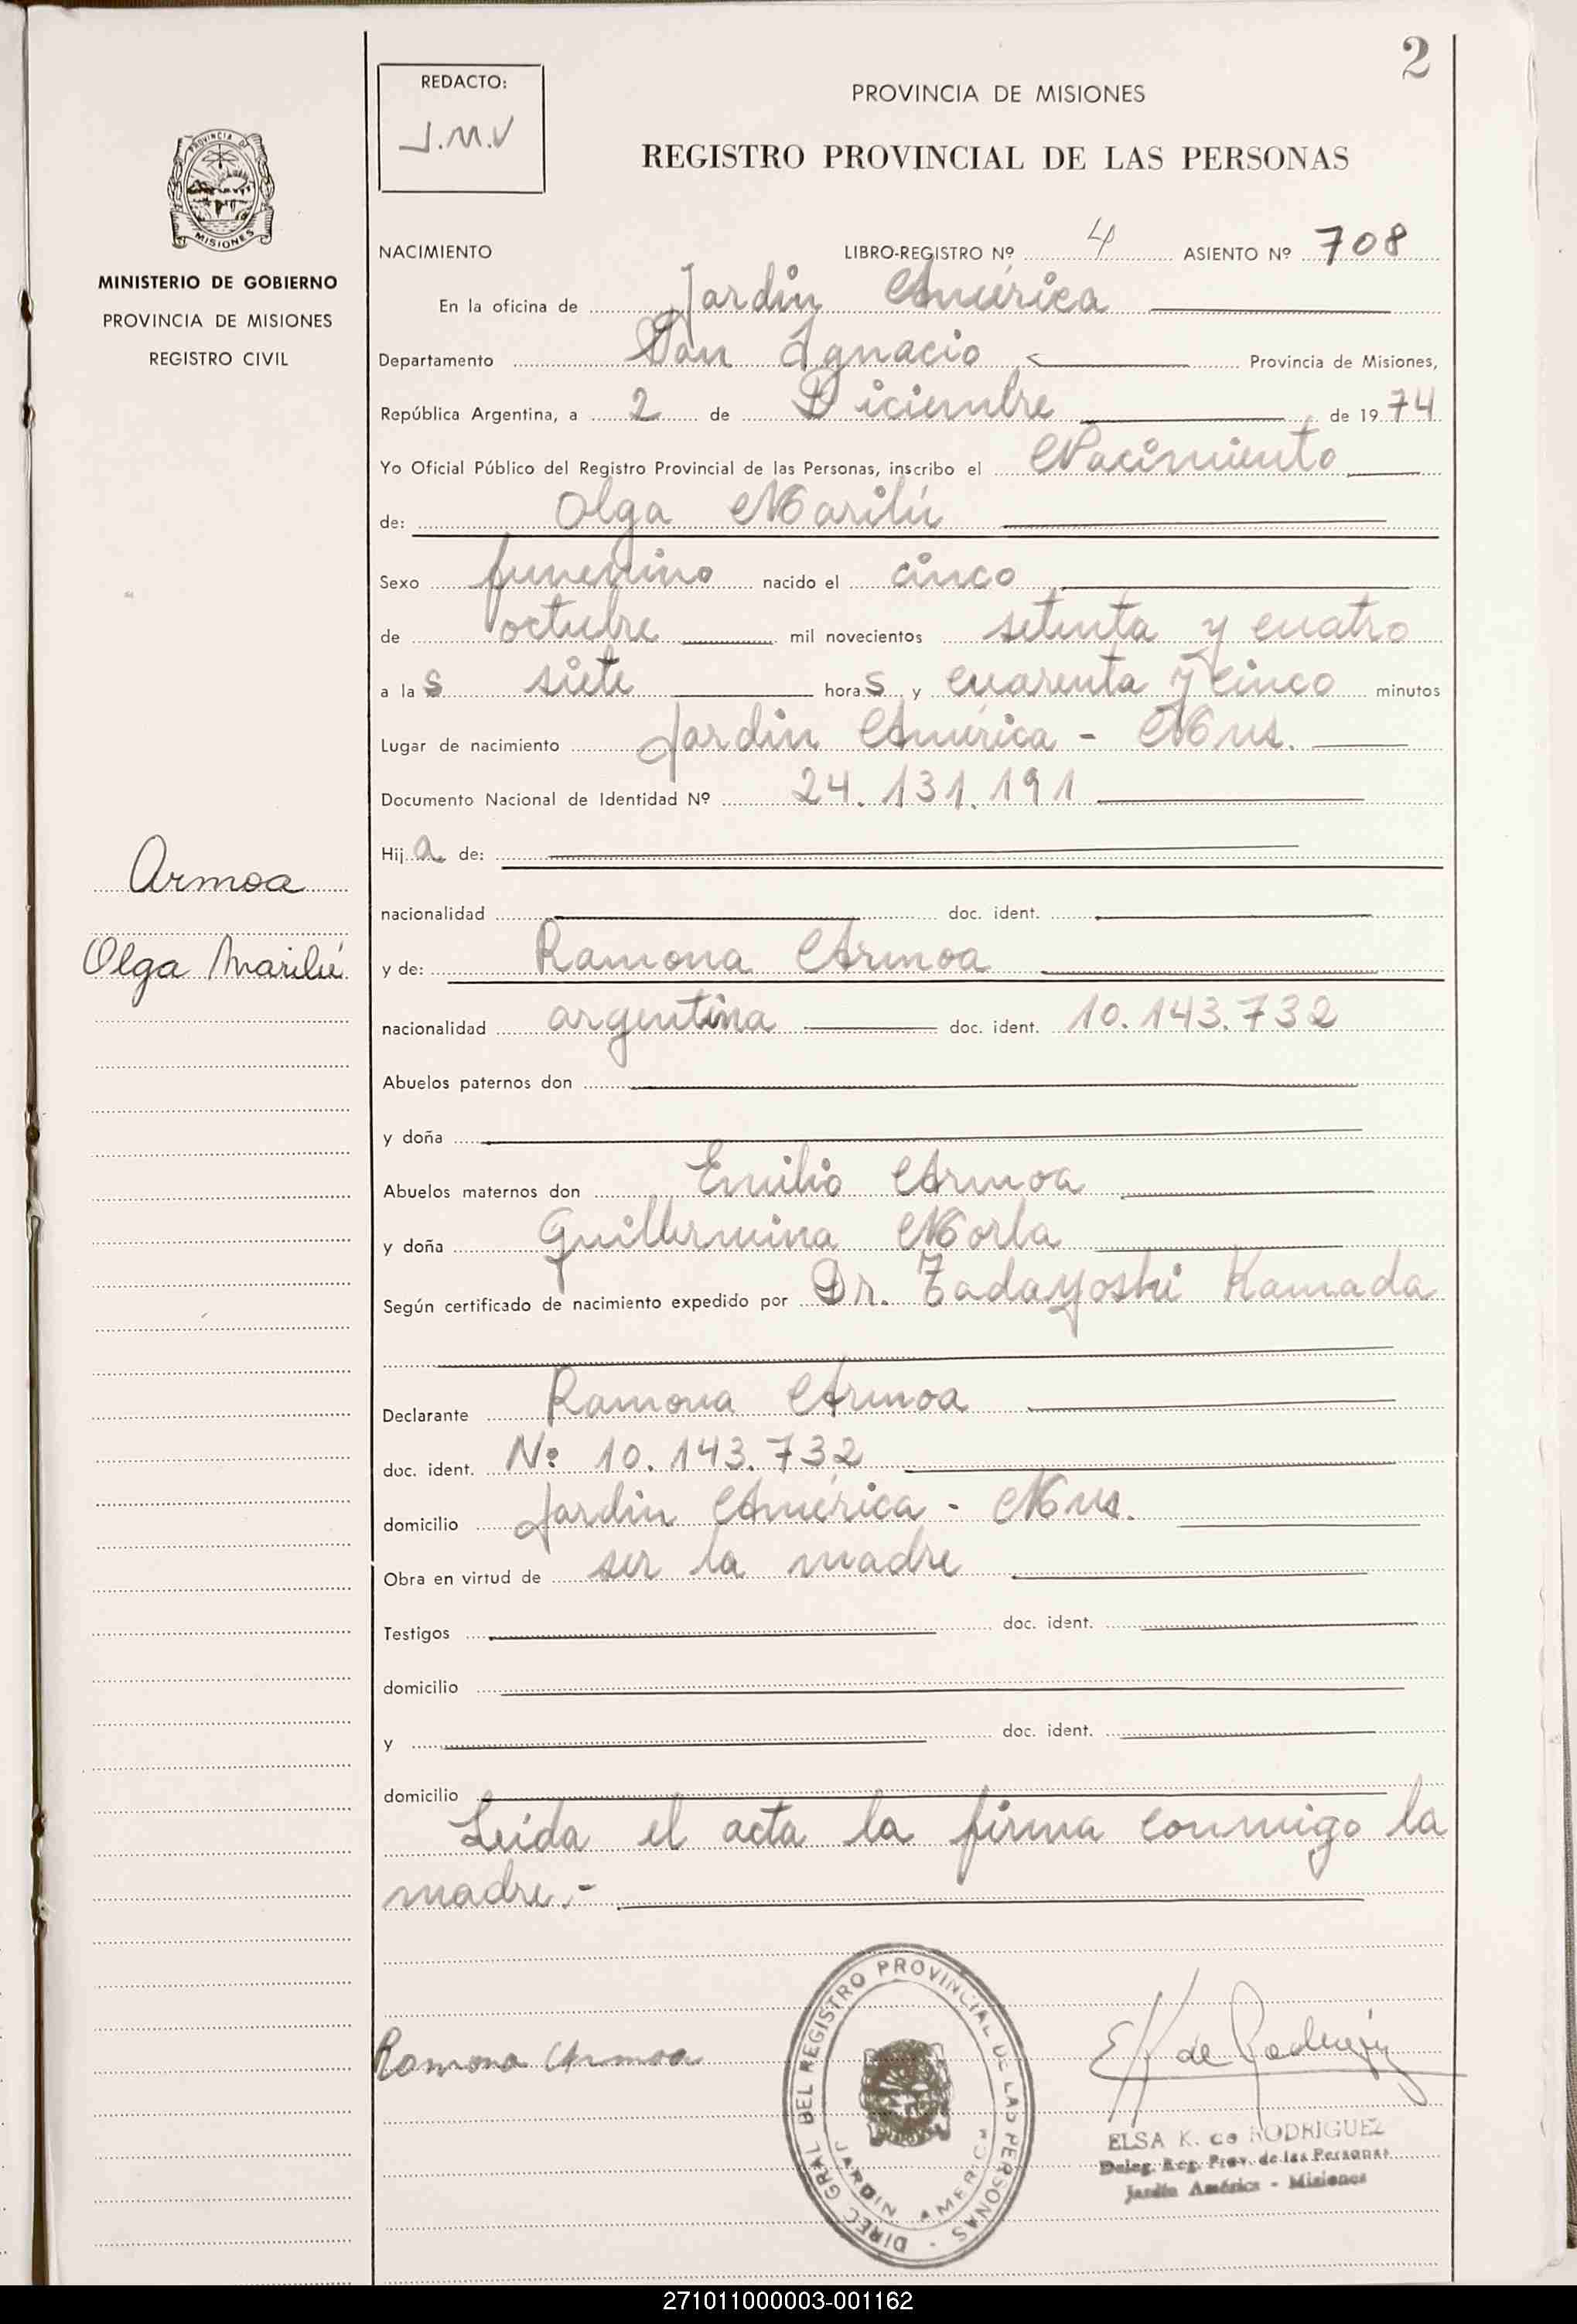 2
REDACTO:
J.M.V
PROVINCIA DE MISIONES
REGISTRO PROVINCIAL DE LAS PERSONAS
PROVINCIA DE
MISIONES
MINISTERIO DE GOBIERNO
PROVINCIA DE MISIONES
REGISTRO CIVIL
NACIMIENTO LIBRO-REGISTRO Nº 4 ASIENTO Nº 708
En la oficina de Jardin América
Departamento San Ignacio Provincia de Misiones,
República Argentina, a 2 de Diciembre de 1974
Yo Oficial Público del Registro Provincial de las Personas, inscribo el Nacimiento
de: Olga Marilú
Sexo femenino nacido el cinco
de octubre mil novecientos setenta y cuatro
a las siete horas y cuarenta y cinco minutos
Lugar de nacimiento Jardin América - Mns.
Documento Nacional de Identidad Nº 24.131.191
Hija de:
nacionalidad doc. ident.
y de: Ramona Armoa
nacionalidad argentina doc. ident. 10.143.732
Abuelos paternos don
y doña
Abuelos maternos don Emilio Armoa
y doña Guillermina Morla
Según certificado de nacimiento expedido por Dr. Tadayoshi Kamada
Declarante Ramona Armoa
doc. ident. Nº 10.143.732
domicilio Jardin América - Mns.
Obra en virtud de ser la madre
Testigos doc. ident.
domicilio
y doc. ident.
domicilio
Leída el acta la firma conmigo la
madre.-
Armoa
Olga Marilú
Ramona Armoa
DIREC. GRAL DEL REGISTRO PROVINCIAL DE LAS PERSONAS -
JARDIN AMERICA
E K de Rodriguez
ELSA K. de RODRIGUEZ
Deleg. Reg. Prov. de las Personas
Jardín América - Misiones
271011000003-001162